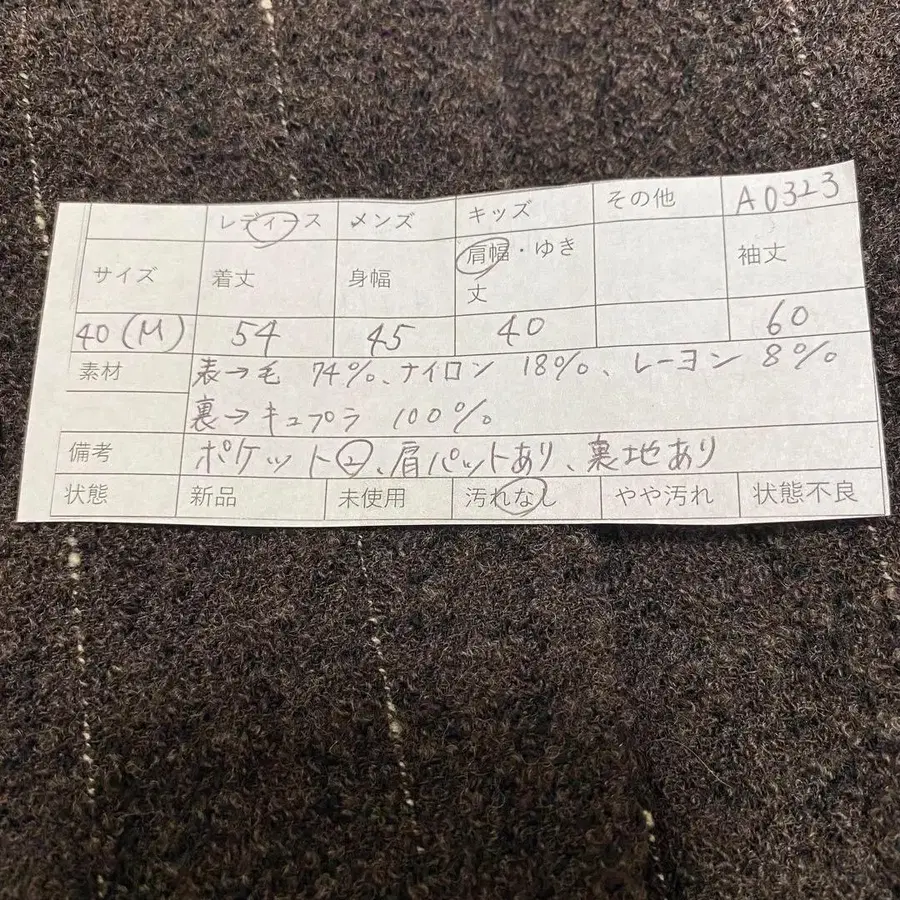 レディース メンズ キッズ その他 A0323
サイズ 着丈 身幅 肩幅・ゆき丈 袖丈
40(M) 54 45 40 60
素材 表→毛 74%、ナイロン 18%、レーヨン 8%
裏→キュプラ 100%
備考 ポケット②、肩パットあり、裏地あり
状態 新品 未使用 汚れなし やや汚れ 状態不良